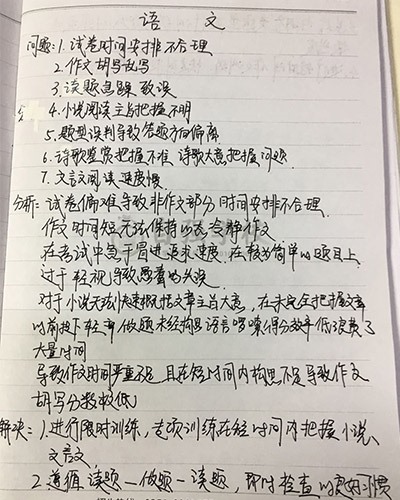 语 文
问题:1.试卷时间安排不合理
2.作文胡写乱写
3.读题急躁致误
4.小说阅读主旨把握不明
5.题型误判导致答题方向偏离
6.诗歌鉴赏把握不准 诗歌大意把握问题
7.文言文阅读速度慢
分析:试卷偏难导致非作文部分时间安排不合理
作文时间短无法保持心态冷静作文
在考试中急于冒进追求速度,在较为简单的题目上
过于轻视导致
对于小说无法快速概括文章主旨大意,在未完全把握文章
以前按下轻率做题未经构思语言啰嗦得分效率低浪费了
大量时间
导致作文时间严重不足 且在短时间内构思不足导致作文
胡写分数较低
解决:1.进行限时训练,专项训练在短时间内把握小说、
文言文
2.遵循 读题一做题一读题,即时检查的良好习惯